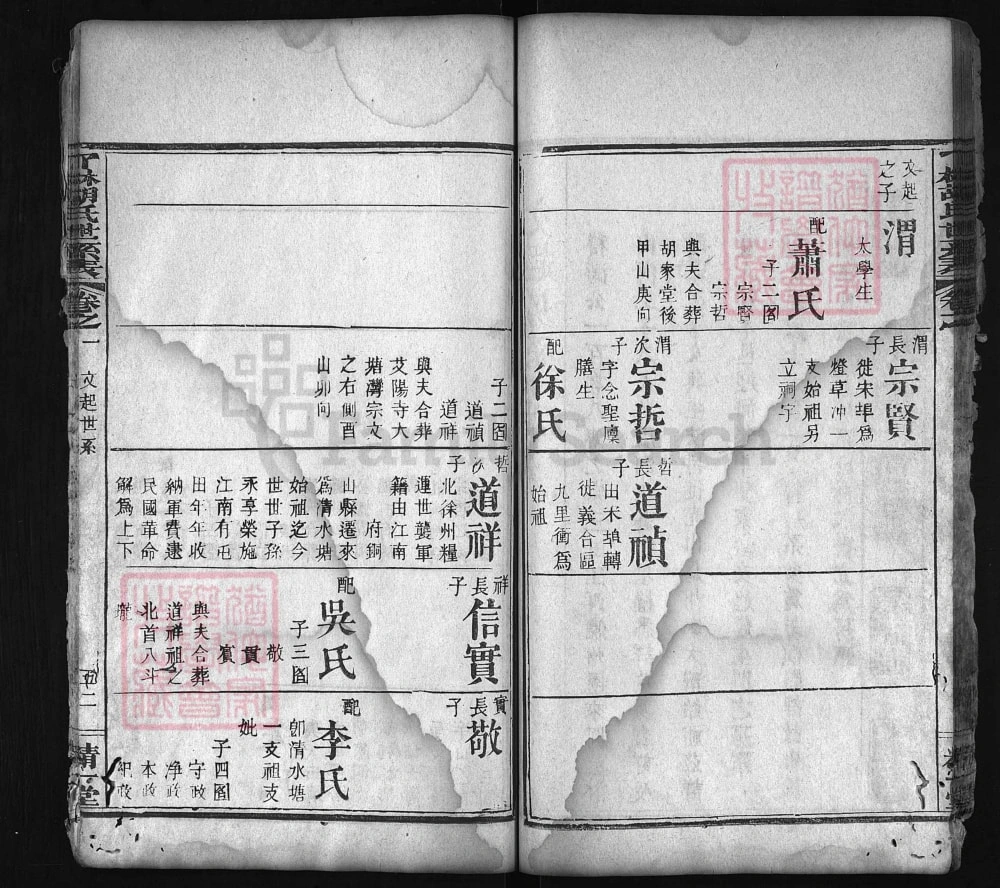 文起
之子
渭
太學生
配
蕭氏
子二圖
宗賢
宗哲
與夫合葬
胡家堂後
甲山庚向
渭長子
宗賢
徙宋埠為
燈草冲一
支始祖另
立祠宇
渭次子
宗哲
字念聖廩
膳生
配
徐氏
哲長子
道禎
田禾埴轉
徙義合區
九里衝爲
始祖
子二圖
道禎
道祥
與夫合葬
艾陽寺大
塘灣宗文
之右側酉
山卯向
哲次子
道祥
北徐州糧
運世襲軍
籍由江南
府銅
山縣遷來
爲清水塘
始祖迄今
世世子孫
永享榮施
江南有屯
田年年收
納軍費逮
民國革命
解爲上下
祥長子
信實
配
吳氏
子三圖
敬
貫
賓
與夫合葬
道祥祖之
北首八斗
壠
實長子
敬
配
李氏
卽清水塘
一支祖支
妣
子四圖
守政
净政
本政
紀政
丁林胡氏世系表
卷之一
文起世系
五二
精一堂
FamilySearch